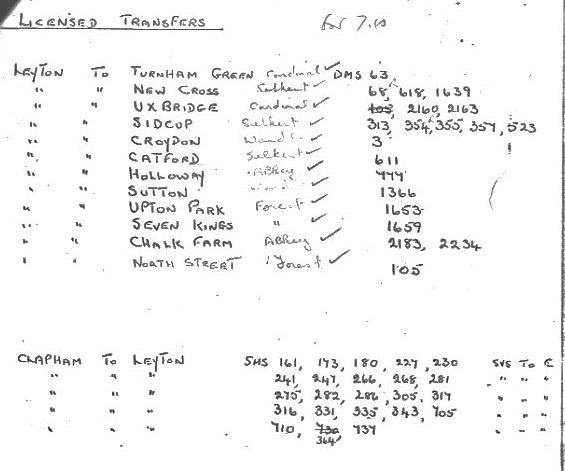 LICENSED TRANSFERS for 7.10
LEYTON TO TURNHAM GREEN Cardinal ✓ DMS 63,
" " NEW CROSS Selkent ✓ 68, 618, 1639
" " UXBRIDGE Cardinal ✓ 105, 2160, 2163
" " SIDCUP Selkent ✓ 313, 354, 355, 357, 523
" " CROYDON ✓ 3 !
" " CATFORD Selkent ✓ 611
" " HOLLOWAY Abbey ✓ 777
" " SUTTON ✓ 1366
" " UPTON PARK Forest ✓ 1653
" " SEVEN KINGS " ✓ 1659
" " CHALK FARM Abbey ✓ 2183, 2234
" " NORTH STREET Forest ✓ 105
CLAPHAM TO LEYTON SMS 161, 173, 180, 227, 230 SVS TO E
" " " 241, 247, 266, 268, 281 " " "
" " " 275, 282, 286, 305, 317 " " "
" " " 316, 331, 335, 343, 705 " " "
" " " 710, 730 737 " " "
364